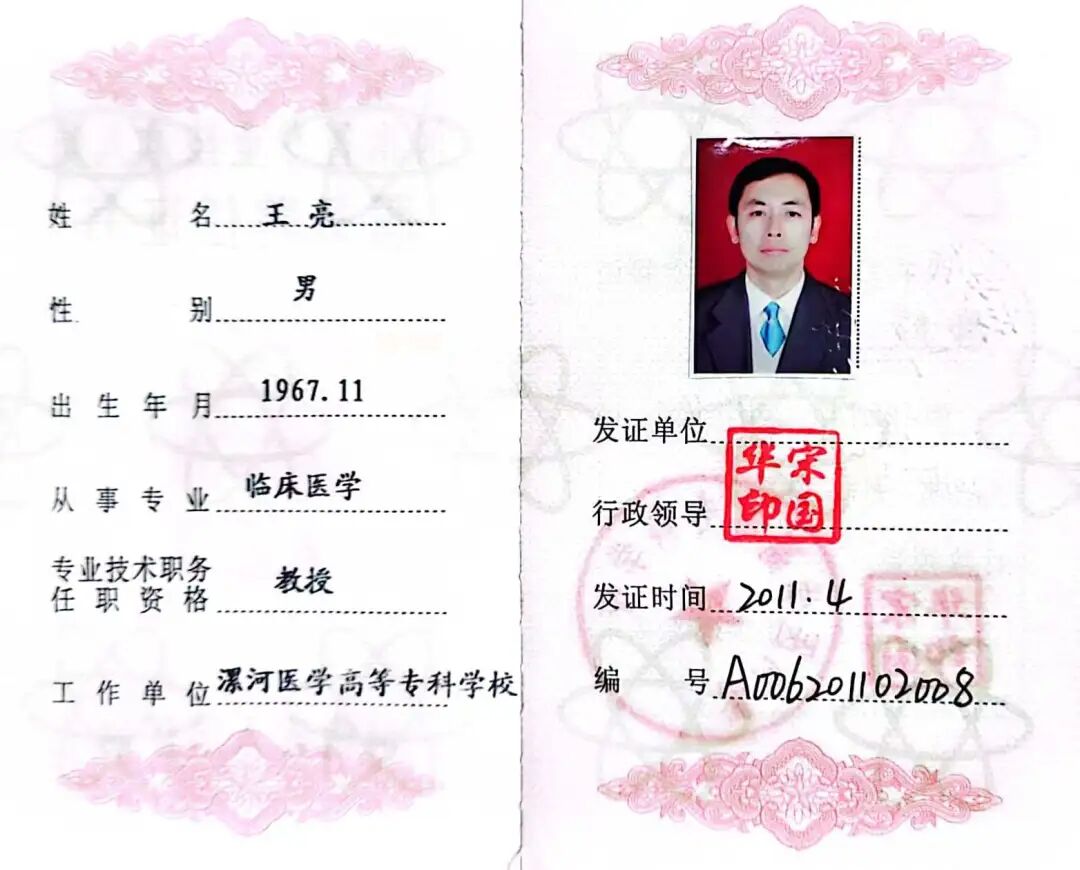 姓 名 王 亮
性 别 男
出 生 年 月 1967.11
从 事 专 业 临床医学
专业技术职务
任 职 资 格 教授
工 作 单 位 漯河医学高等专科学校
发证单位
行政领导
宋国华印
发证时间 2011.4
编 号 A006201102008